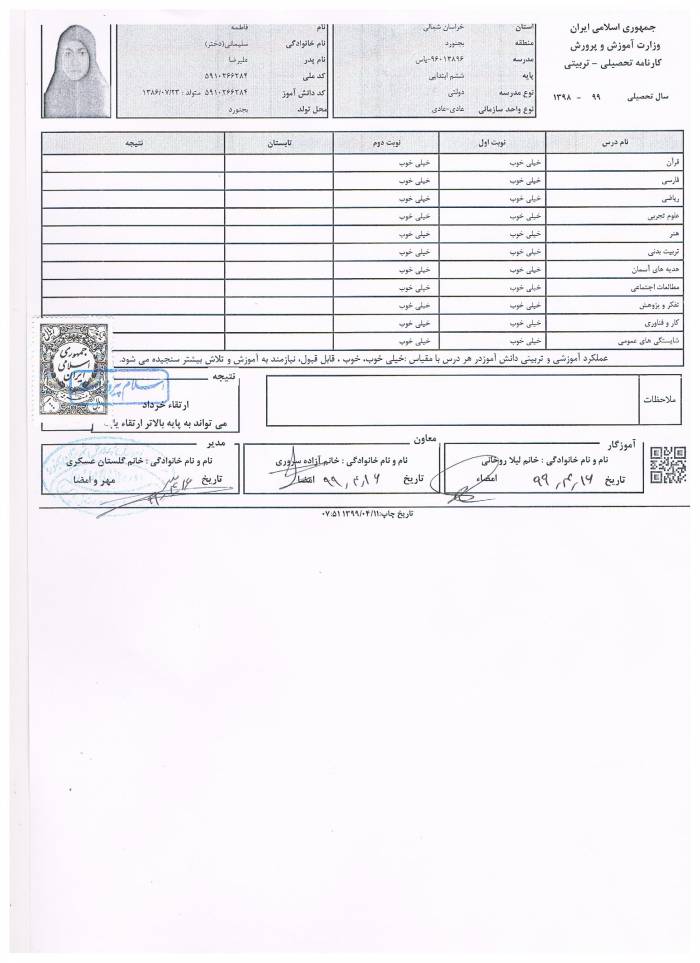 جمهوری اسلامی ایران
وزارت آموزش و پرورش
کارنامه تحصیلی - تربیتی
سال تحصیلی ۹۹ - ۱۳۹۸
استان خراسان شمالی
منطقه بجنورد
مدرسه ۹۶۰۱۳۸۹۶-یاس
پایه ششم ابتدایی
نوع مدرسه دولتی
نوع واحد سازمانی عادی-عادی
نام فاطمه
نام خانوادگی سلیمانی(دختر)
نام پدر علیرضا
کد ملی ۵۹۱۰۲۶۶۳۸۴
کد دانش آموز ۵۹۱۰۲۶۶۳۸۴ متولد : ۱۳۸۶/۰۷/۲۳
محل تولد بجنورد
نام درس نوبت اول نوبت دوم تابستان نتیجه
قرآن خیلی خوب خیلی خوب
فارسی خیلی خوب خیلی خوب
ریاضی خیلی خوب خیلی خوب
علوم تجربی خیلی خوب خیلی خوب
هنر خیلی خوب خیلی خوب
تربیت بدنی خیلی خوب خیلی خوب
هدیه های آسمان خیلی خوب خیلی خوب
مطالعات اجتماعی خیلی خوب خیلی خوب
تفکر و پژوهش خیلی خوب خیلی خوب
کار و فناوری خیلی خوب خیلی خوب
شایستگی های عمومی خیلی خوب خیلی خوب
عملکرد آموزشی و تربیتی دانش آموزدر هر درس با مقیاس :خیلی خوب، خوب ، قابل قبول، نیازمند به آموزش و تلاش بیشتر سنجیده می شود.
جمهوری
اسلامی
ایران
ملاحظات
نتیجه
ارتقاء خرداد
می تواند به پایه بالاتر ارتقاء
آموزگار
نام و نام خانوادگی : خانم لیلا روحانی
تاریخ ۹۹,۴,۱۶ امضاء
معاون
نام و نام خانوادگی : خانم آزاده سروری
تاریخ ۹۹,۴,۱۶ امضا
مدیر
نام و نام خانوادگی : خانم گلستان عسکری
تاریخ مهر و امضا
تاریخ چاپ:۱۳۹۹/۰۴/۱۱ ۰۷:۵۱